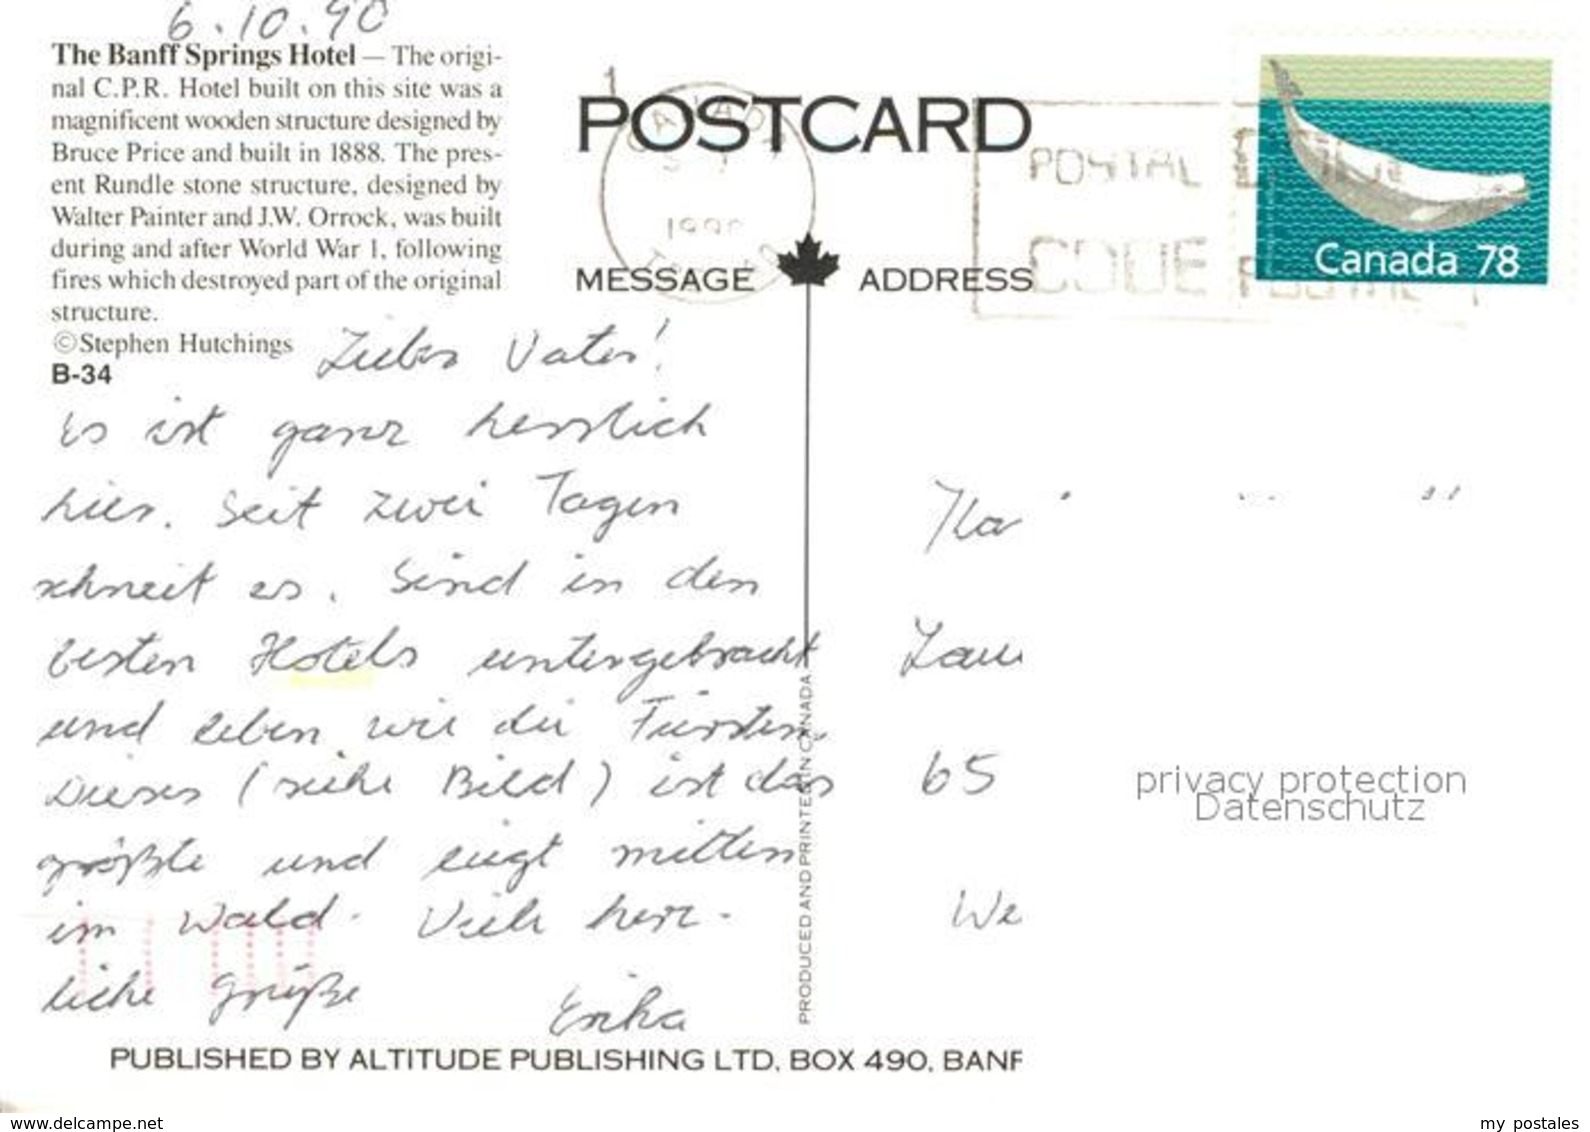 6.10.90
The Banff Springs Hotel — The origi-
nal C.P.R. Hotel built on this site was a
magnificent wooden structure designed by
Bruce Price and built in 1888. The pres-
ent Rundle stone structure, designed by
Walter Painter and J.W. Orrock, was built
during and after World War I, following
fires which destroyed part of the original
structure.
©Stephen Hutchings
B-34
POSTCARD
MESSAGE ADDRESS
1
1990
POSTAL
CODE POSTAL
Canada 78
Lieber Vater!
Es ist ganz herrlich
hier. Seit zwei Tagen
schneit es. Sind in den
besten Hotels untergebracht
und leben wie die Fürsten.
Dieses (siehe Bild) ist das
größte und liegt mitten
im Wald. Viele herz-
liche Grüße
Erika
65
We
privacy protection
Datenschutz
PRODUCED AND PRINTED IN CANADA
PUBLISHED BY ALTITUDE PUBLISHING LTD, BOX 490, BANF
www.delcampe.net
my postales